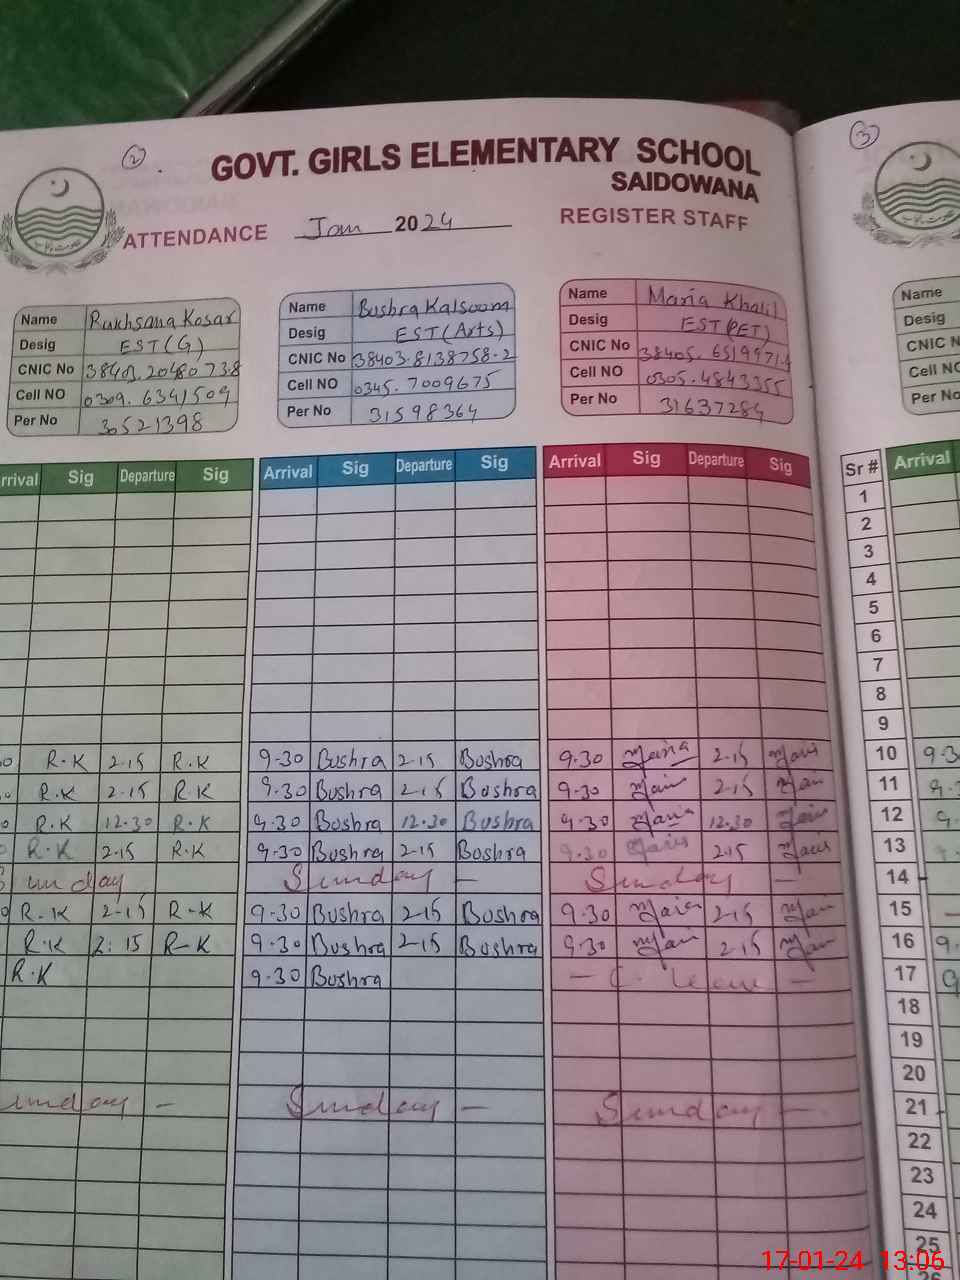 2
3
GOVT. GIRLS ELEMENTARY SCHOOL
SAIDOWANA
ATTENDANCE Jan 2024 REGISTER STAFF
Name Rukhsana Kosar
Desig EST (G)
CNIC No 38403.2048073.8
Cell NO 0309.6341509
Per No 30521398
Name Bushra Kalsoom
Desig EST (Arts)
CNIC No 38403.8138758-2
Cell NO 0345.7009675
Per No 31598364
Name Maria Khalil
Desig EST (PET)
CNIC No 38405.6519971.4
Cell NO 0305.4843355
Per No 31637284
Name
Desig
CNIC N
Cell NO
Per No
rrival Sig Departure Sig Arrival Sig Departure Sig Arrival Sig Departure Sig Sr # Arrival
1
2
3
4
5
6
7
8
9
R.K 2.15 R.K 9.30 Bushra 2.15 Bushra 9.30 Maria 2.15 Maria 10 9.3
R.K 2.15 R.K 9.30 Bushra 2.15 Bushra 9.30 Maria 2.15 Maria 11 9.
R.K 12.30 R.K 9.30 Bushra 12.30 Bushra 9.30 Maria 12.30 Maria 12 9.
R.K 2.15 R.K 9.30 Bushra 2.15 Bushra 9.30 Maria 2.15 Maria 13
Sunday Sunday - Sunday - 14
R.K 2.15 R.K 9.30 Bushra 2.15 Bushra 9.30 Maria 2.15 Maria 15
R.K 2:15 R-K 9.30 Bushra 2.15 Bushra 9.30 Maria 2.15 Maria 16 9.
R.K 9.30 Bushra - C. Leave - 17 9
18
19
20
unday - Sunday - Sunday - 21
22
23
24
25
26
17-01-24 13:06